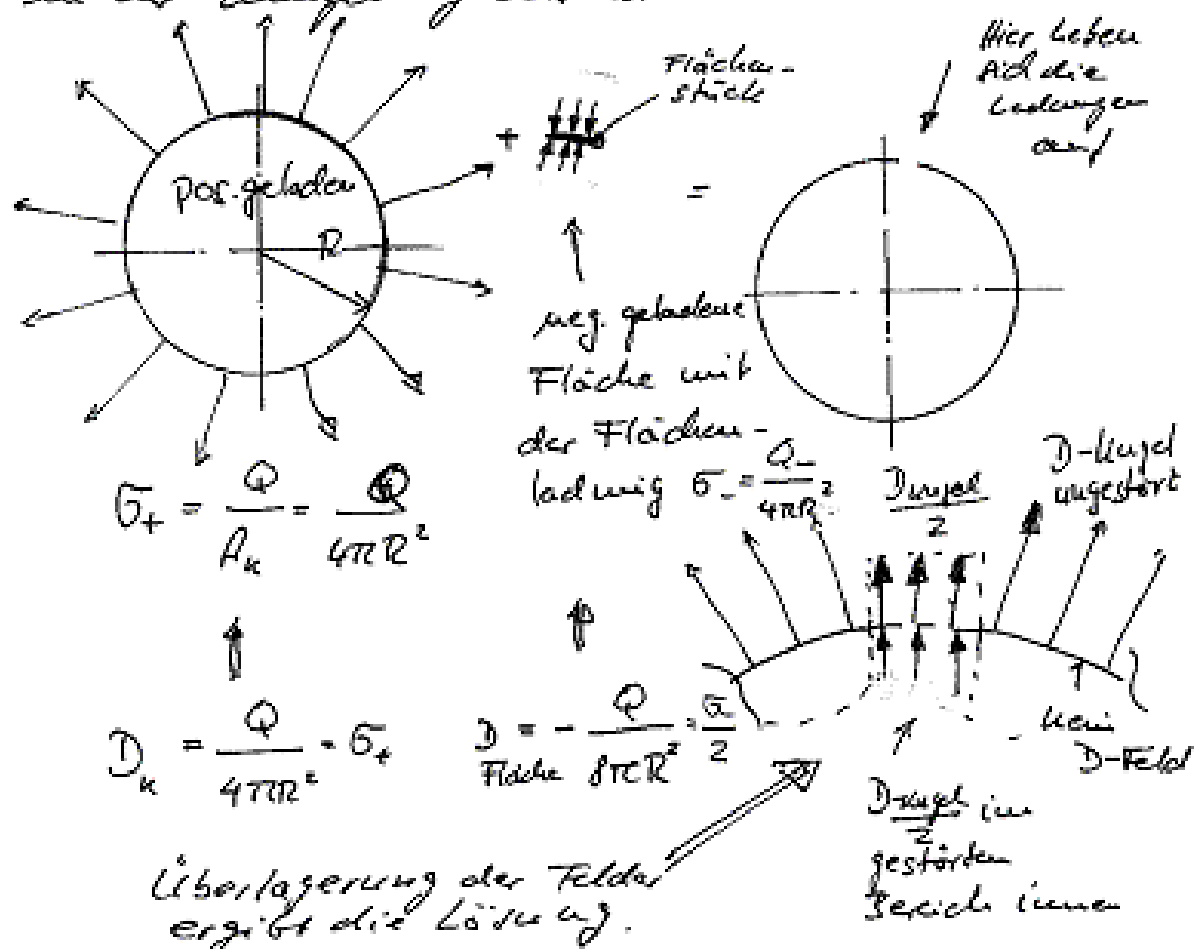 pos. geladen
R
+
Flächen-
stück
=
Hier heben
sich die
Ladungen
auf
neg. geladene
Fläche mit
der Flächen-
ladung σ₋ = Q₋ / 4πR²
σ₊ = Q / Aₖ = Q / 4πR²
D-Kugel / 2
D-Kugel
ungestört
Dₖ = Q / 4πR² = σ₊
D Fläche = - Q / 8πR² = σ / 2
kein
D-Feld
D-Kugel / 2 im
gestörten
Bereich innen
Überlagerung der Felder
ergibt die Lösung.